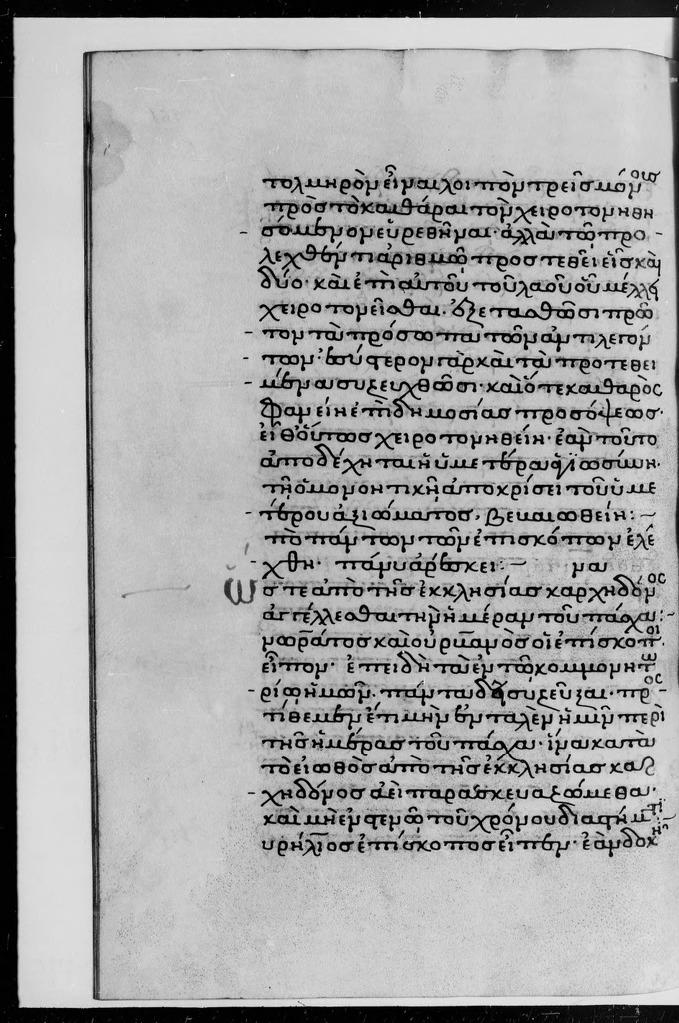 τολμηρὸν εἶναί μοι πὸν τρεῖς μόνοις
πρὸς τὸ καθᾶραι τὸν χειροτονηθη
σόμενον εὑρεθῆναι· ἀλλὰ τῶ προ
λεχθέντι ἀριθμῶ προστεθείεισκαὶ
δύο· καὶ ἐπὶ αὐτοῦ τοῦ λαοῦ οὗ μέλλει
χειροτονεῖσθαι. ἐξετασθῶσι πρῶ
τον τὰ πρόσωπα τῶν ἀντιλεγόν
των· ὕστερον γὰρ καὶ τὰ προτεθει
μένα συζευχθῶσι· καὶ ὅτε καθαρὸς
φανείη ἐπὶ δημοσίας προσόψεως·
εἶθ' οὕτως χειροτονηθείη· ἐὰν τοῦτο
ἀποδέχηται ἡ ὑμετέρα ἁγιωσύνη·
τῆ ὁμονοητικῆ ἀποκρίσει τοῦ ὑμε
τέρου ἀξιώματος, βεβαιωθείη:
πὸ πάντων τῶν ἐπισκόπων ἐλέ
χθη· πάνυ ἀρέσκει: μαι
Ὥστε ἀπὸ τῆς ἐκκλησίας καρχηδόνος
ἀγγέλλεσθαι τὴν ἡμέραν τοῦ πάσχα:
νωρᾶτος καὶ οὐρμανὸς οἱ ἐπίσκοποι
εἶπον· ἐπειδὴ τὰ ἐν τῶ κομμονητω
ρίω ἡμῶν. πάντα δεῖ συζεῦξαι· προς
τίθεμεν ἔτι μὴν ἐνταλὲν ἡμῖν περὶ
τῆς ἡμέρας τοῦ πάσχα· ἵνα κατὰ
τὸ εἰωθὸς ἀπὸ τῆς ἐκκλησίας καρ
χηδόνος ἀεὶ παρασκευαζώμεθα·
καὶ μὴ ἐν στενῶ τοῦ χρόνου διαστήματι
υρήλιος ἐπίσκοπος εἶπεν· ἐὰν δοκῆ